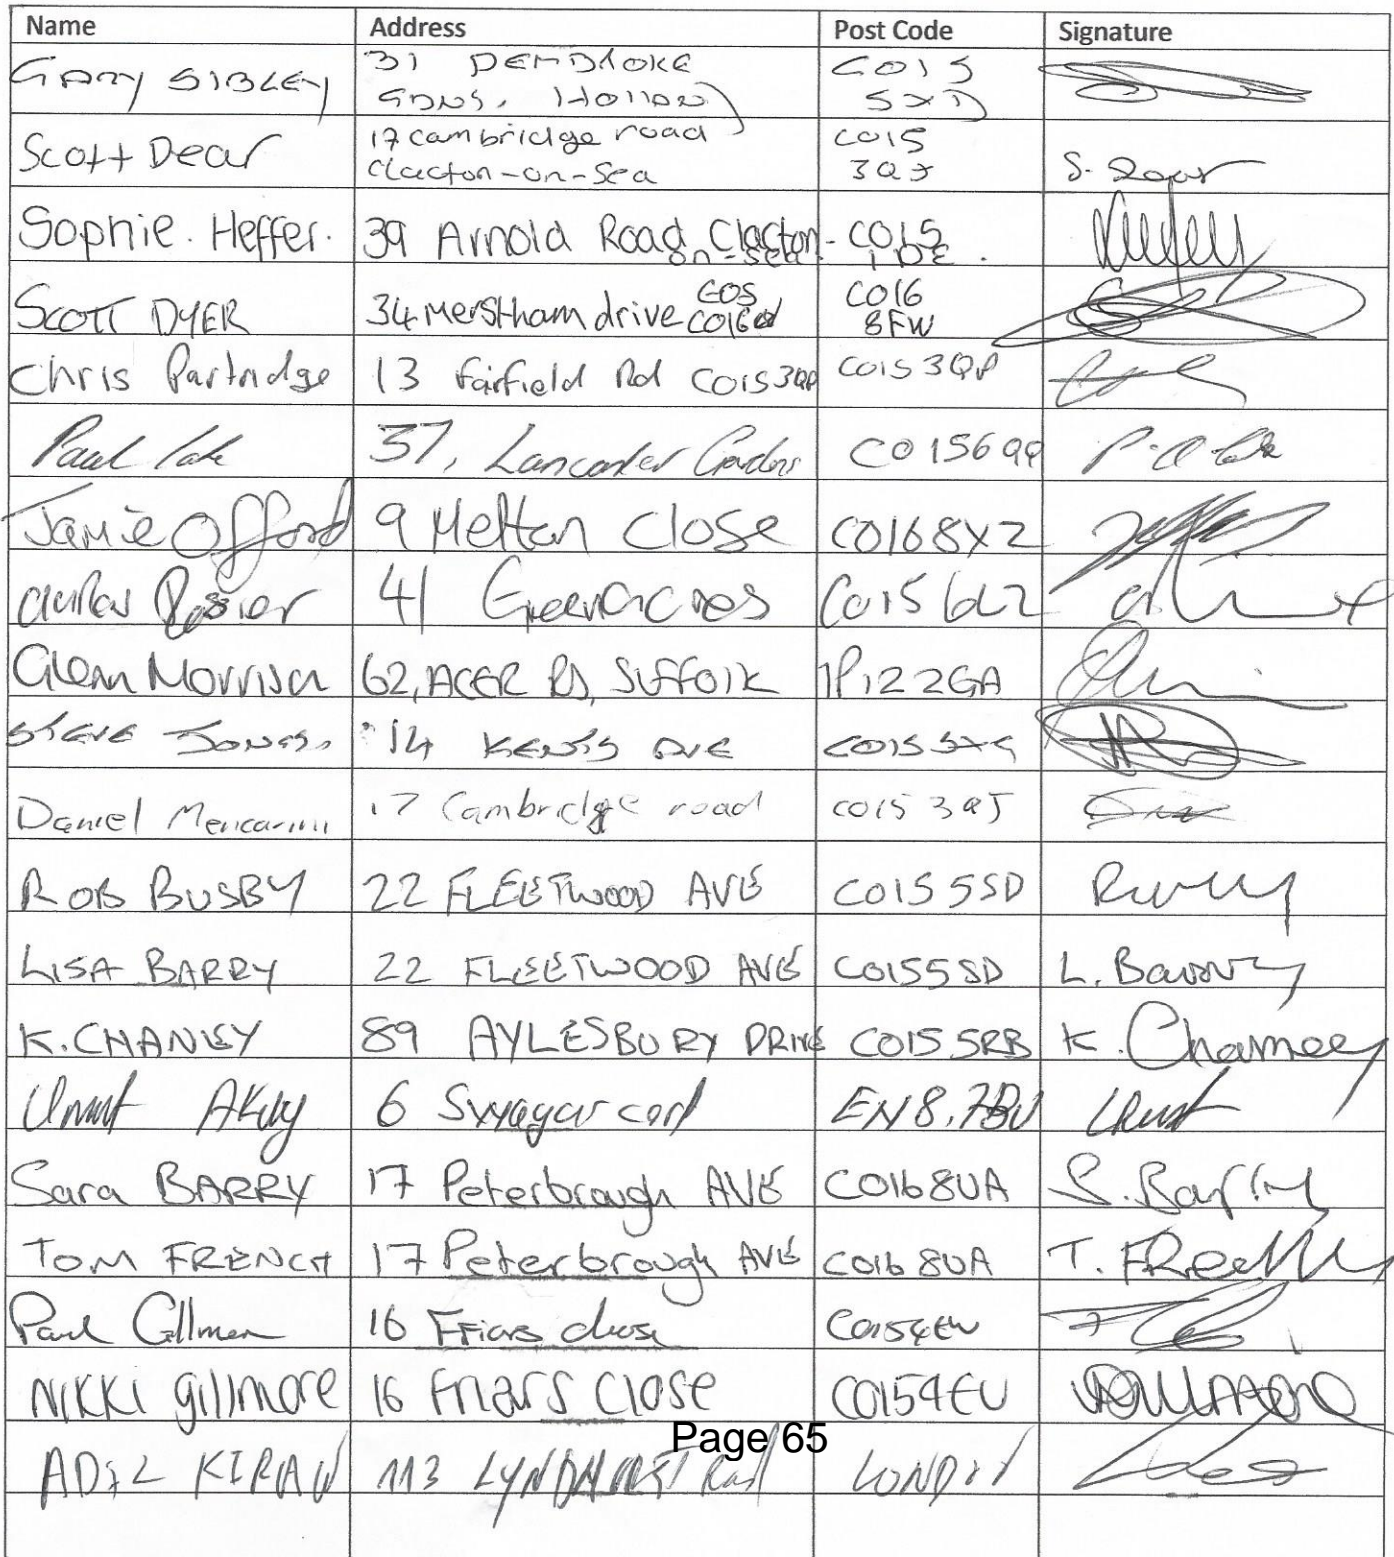 Name Address Post Code Signature
Gary SIBLEY 31 PEMBROKE CO15
GDNS, Holland 5XD
Scott Dear 17 cambridge road CO15
Clacton-on-Sea 3QJ S. Dear
Sophie. Heffer. 39 Arnold Road Clacton- CO15
on-sea. 1DE.
SCOTT DYER 34 Merstham drive COS CO16
8FW
Chris Partridge 13 Fairfield Rd CO153QP CO15 3QP
Paul 37, Lancaster Gardens CO156QQ
Jamie Offord 9 Melton Close CO168XZ
41 Greenacres CO15 6LZ
Glenn Morrison 62, ACER RD, SUFFOlK IP122GA
STEVE JONES. 14 AVE CO15
Daniel Mencarini 17 Cambridge road CO15 3QJ
ROB BUSBY 22 FLEETWOOD AVE CO15 5SD
LISA BARRY 22 FLEETWOOD AVE CO155SD L. Barry
K. CHANEY 89 AYLESBURY DRIVE CO15 5RB K. Chaney
Umut 6 EN8,7BU Umut
Sara BARRY 17 Peterbrough AVE CO168UA S. Barry
TOM FRENCH 17 Peterbrough AVE CO16 8UA T. FRench
Paul 16 Friars close CO154EU
NIKKI gillmore 16 Friars Close CO154EU
Page 65
113 LYNDHURST Road LONDON